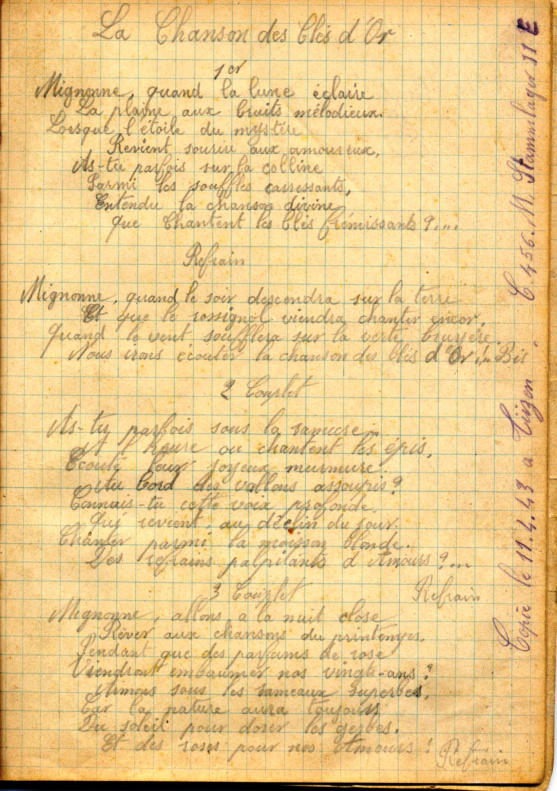 La Chanson des Blés d'Or
1er
Mignonne, quand la lune éclaire
La plaine aux bruits mélodieux.
Lorsque l'étoile du mystère
Revient sourire aux amoureux,
As-tu parfois sur la colline
Parmi les souffles caressants,
Entendu la chanson divine
Que Chantent les blés frémissants ?...
Refrain
Mignonne, quand le soir descendra sur la terre
Et que le rossignol viendra chanter encor,
Quand le vent soufflera sur la verte bruyère
Nous irons écouter la chanson des blés d'Or ! Bis
2 Couplet
As-tu parfois sous la ramure
A l'heure ou chantent les épis,
Ecouté leur joyeux murmure
Au bord des vallons assoupis ?
Connais-tu cette voix profonde
Qui revient, au déclin du jour.
Chanter parmi la moisson blonde.
Des refrains palpitants d'Amours ?...
3 Couplet Refrain
Mignonne, allons a la nuit close
Rêver aux chansons du printemps.
Pendant que des parfums de rose
Viendront embaumer nos vingts-ans ?
Aimons sous les rameaux superbes,
Car la nature aura toujours
Du soleil pour dorer les gerbes.
Et des roses pour nos Amours ! Refrain
Copié le 11.4.43 a C.456. M. Stammlager II E